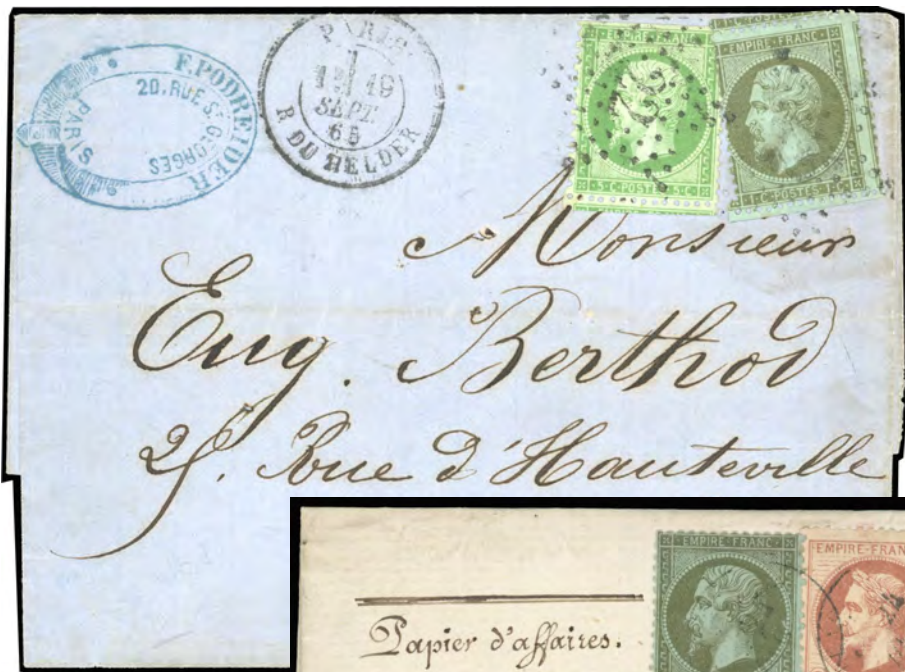 F. PODREIDER
20, RUE ST GEORGES
PARIS
PARIS
19
SEPT.
65
R. DU HELDER
22
EMPIRE FRANC
5 C POSTES 5 C
1 C POSTES 1 C
EMPIRE FRANC
1 C POSTES 1 C
Monsieur
Eug. Berthod
25. Rue d'Hauteville
Papier d'affaires.
EMPIRE FRANC
EMPIRE FRAN